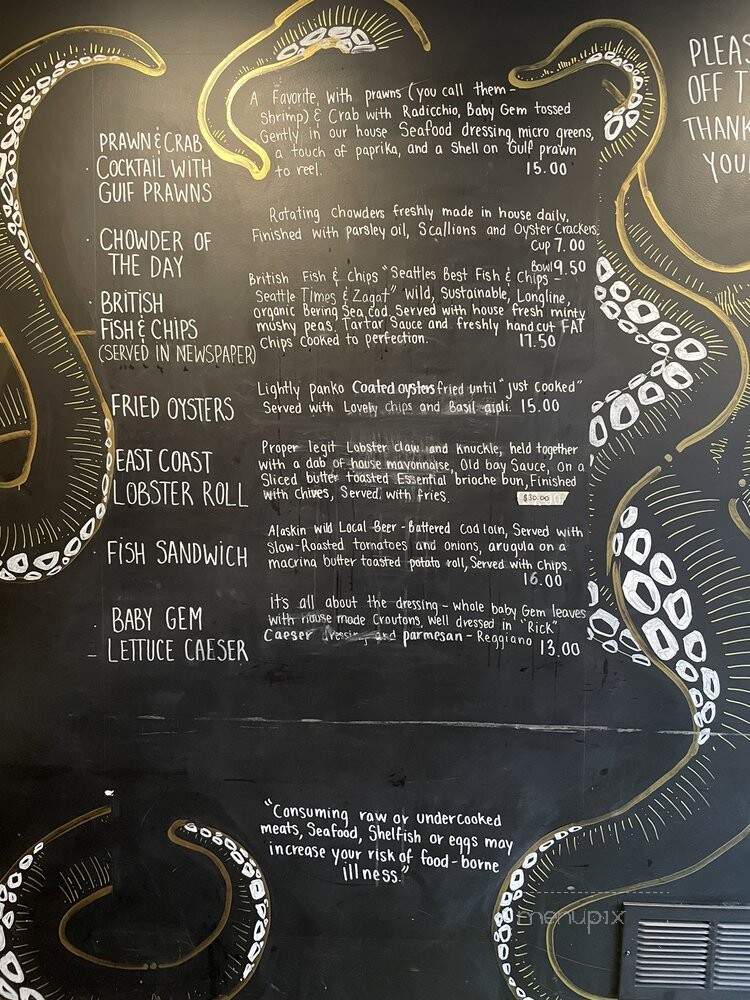 PLEAS
OFF T
THANK
YOU
PRAWN & CRAB
COCKTAIL WITH
GUIF PRAWNS
A Favorite, with prawns (you call them-
Shrimp) & Crab with Radicchio, Baby Gem tossed
Gently in our house Seafood dressing micro greens,
a touch of paprika, and a Shell on Gulf prawn
to reel. 15.00
CHOWDER OF
THE DAY
Rotating Chowders freshly made in house daily,
Finished with parsley oil, Scallions and Oyster Crackers.
Cup 7.00
Bowl 9.50
BRITISH
FISH & CHIPS
(SERVED IN NEWSPAPER)
British Fish & Chips "Seattles Best Fish & Chips -
Seattle Times & Zagat" Wild, Sustainable, Longline,
organic Bering Sea cod Served with house fresh minty
mushy peas, Tartar Sauce and freshly hand cut FAT
Chips Cooked to perfection. 17.50
FRIED OYSTERS
Lightly panko Coated oysters fried until "just cooked"
Served with Lovely chips and Basil aioli. 15.00
EAST COAST
LOBSTER ROLL
Proper legit Lobster claw and Knuckle, held together
with a dab of house mayonnaise, Old bay Sauce, on a
Sliced butter toasted Essential brioche bun, Finished
with Chives, Served with fries. $30.00
FISH SANDWICH
Alaskin wild Local Beer-Battered Cod loin, Served with
Slow-Roasted tomatoes and onions, arugula on a
macrina butter toasted potato roll, Served with chips.
16.00
BABY GEM
LETTUCE CAESER
It's all about the dressing - whole baby Gem leaves
with house made Croutons, Well dressed in "Rick"
Caeser dressing and parmesan - Reggiano 13.00
"Consuming raw or undercooked
meats, Seafood, Shelfish or eggs may
increase your risk of food-borne
illness."
menupix